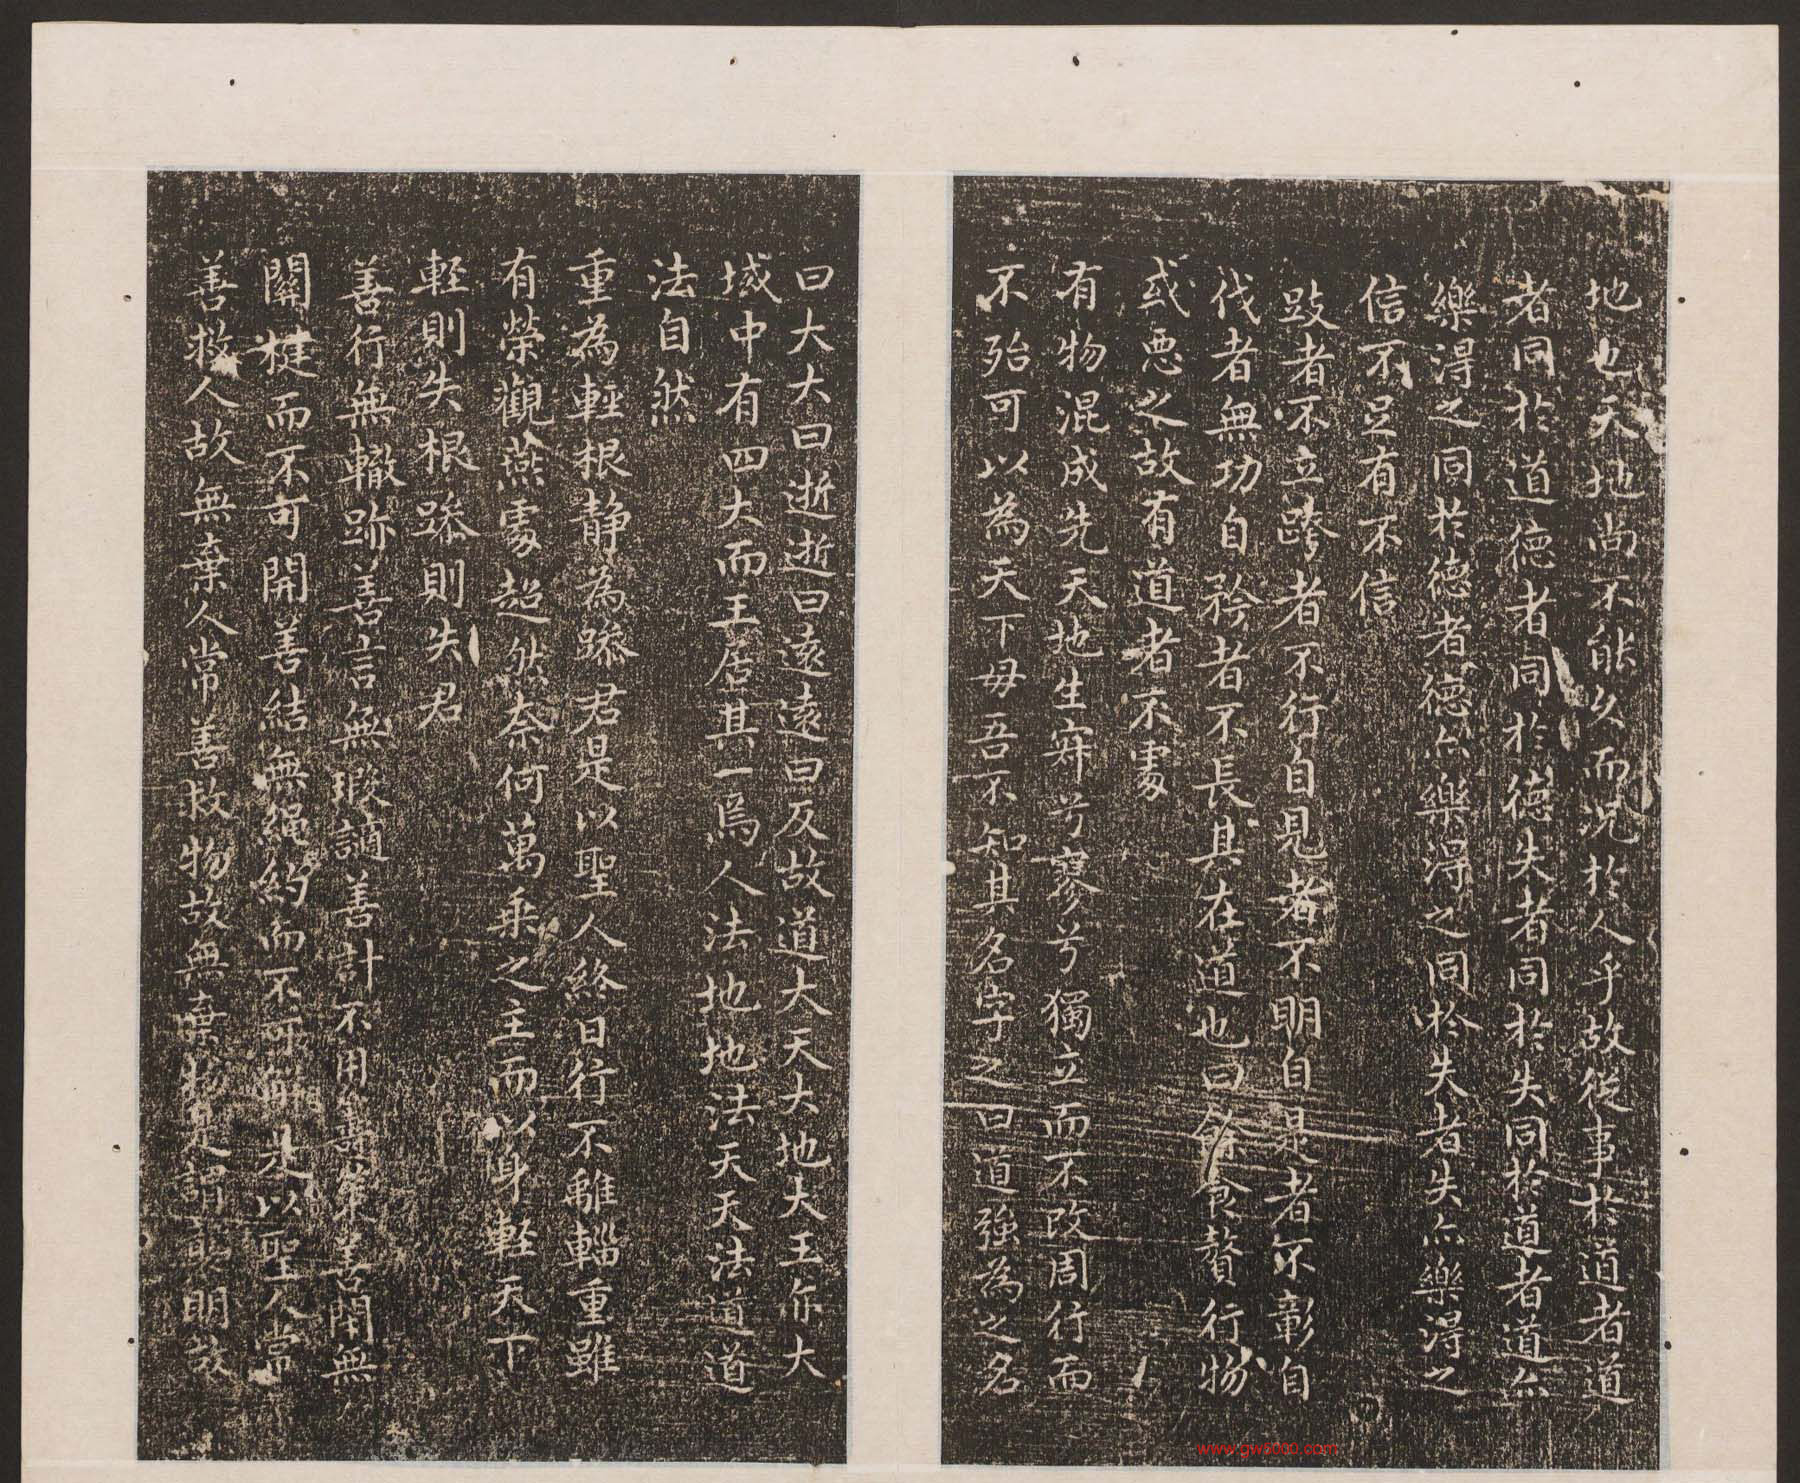 地也天地尚不能久而況於人乎故從事於道者道
者同於道德者同於德失者同於失同於道者道亦
樂得之同於德者德亦樂得之同於失者失亦樂得之
信不足有不信
跂者不立跨者不行自見者不明自是者不彰自
伐者無功自矜者不長其在道也曰餘食贅行物
或惡之故有道者不處
有物混成先天地生寂兮寥兮獨立而不改周行而
不殆可以為天下母吾不知其名字之曰道強為之名
曰大大曰逝逝曰遠遠曰反故道大天大地大王亦大
域中有四大而王居其一焉人法地地法天天法道道
法自然
重為輕根靜為躁君是以聖人終日行不離輜重雖
有榮觀燕處超然奈何萬乘之主而以身輕天下
輕則失根躁則失君
善行無轍跡善言無瑕謫善計不用籌策善閉無
關楗而不可開善結無繩約而不可解是以聖人常
善救人故無棄人常善救物故無棄物是謂襲明故
www.gw5000.com